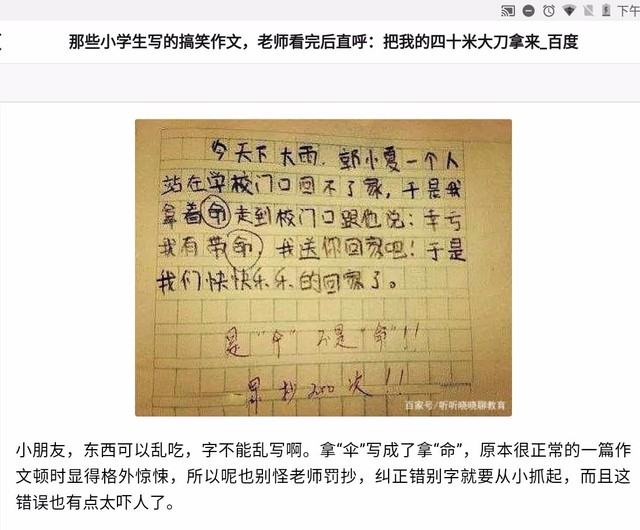 下午
那些小学生写的搞笑作文，老师看完后直呼：把我的四十米大刀拿来_百度
今天下大雨，郭小夏一个人
站在学校门口回不了家，于是我
拿着命走到校门口跟他说：幸亏
我有带命，我送你回家吧！于是
我们快快乐乐的回家了。
是“伞”不是“命”!!
罚抄200次!!
百家号/听听晓晓聊教育
小朋友，东西可以乱吃，字不能乱写啊。拿“伞”写成了拿“命”，原本很正常的一篇作
文顿时显得格外惊悚，所以呢也别怪老师罚抄，纠正错别字就要从小抓起，而且这
错误也有点太吓人了。